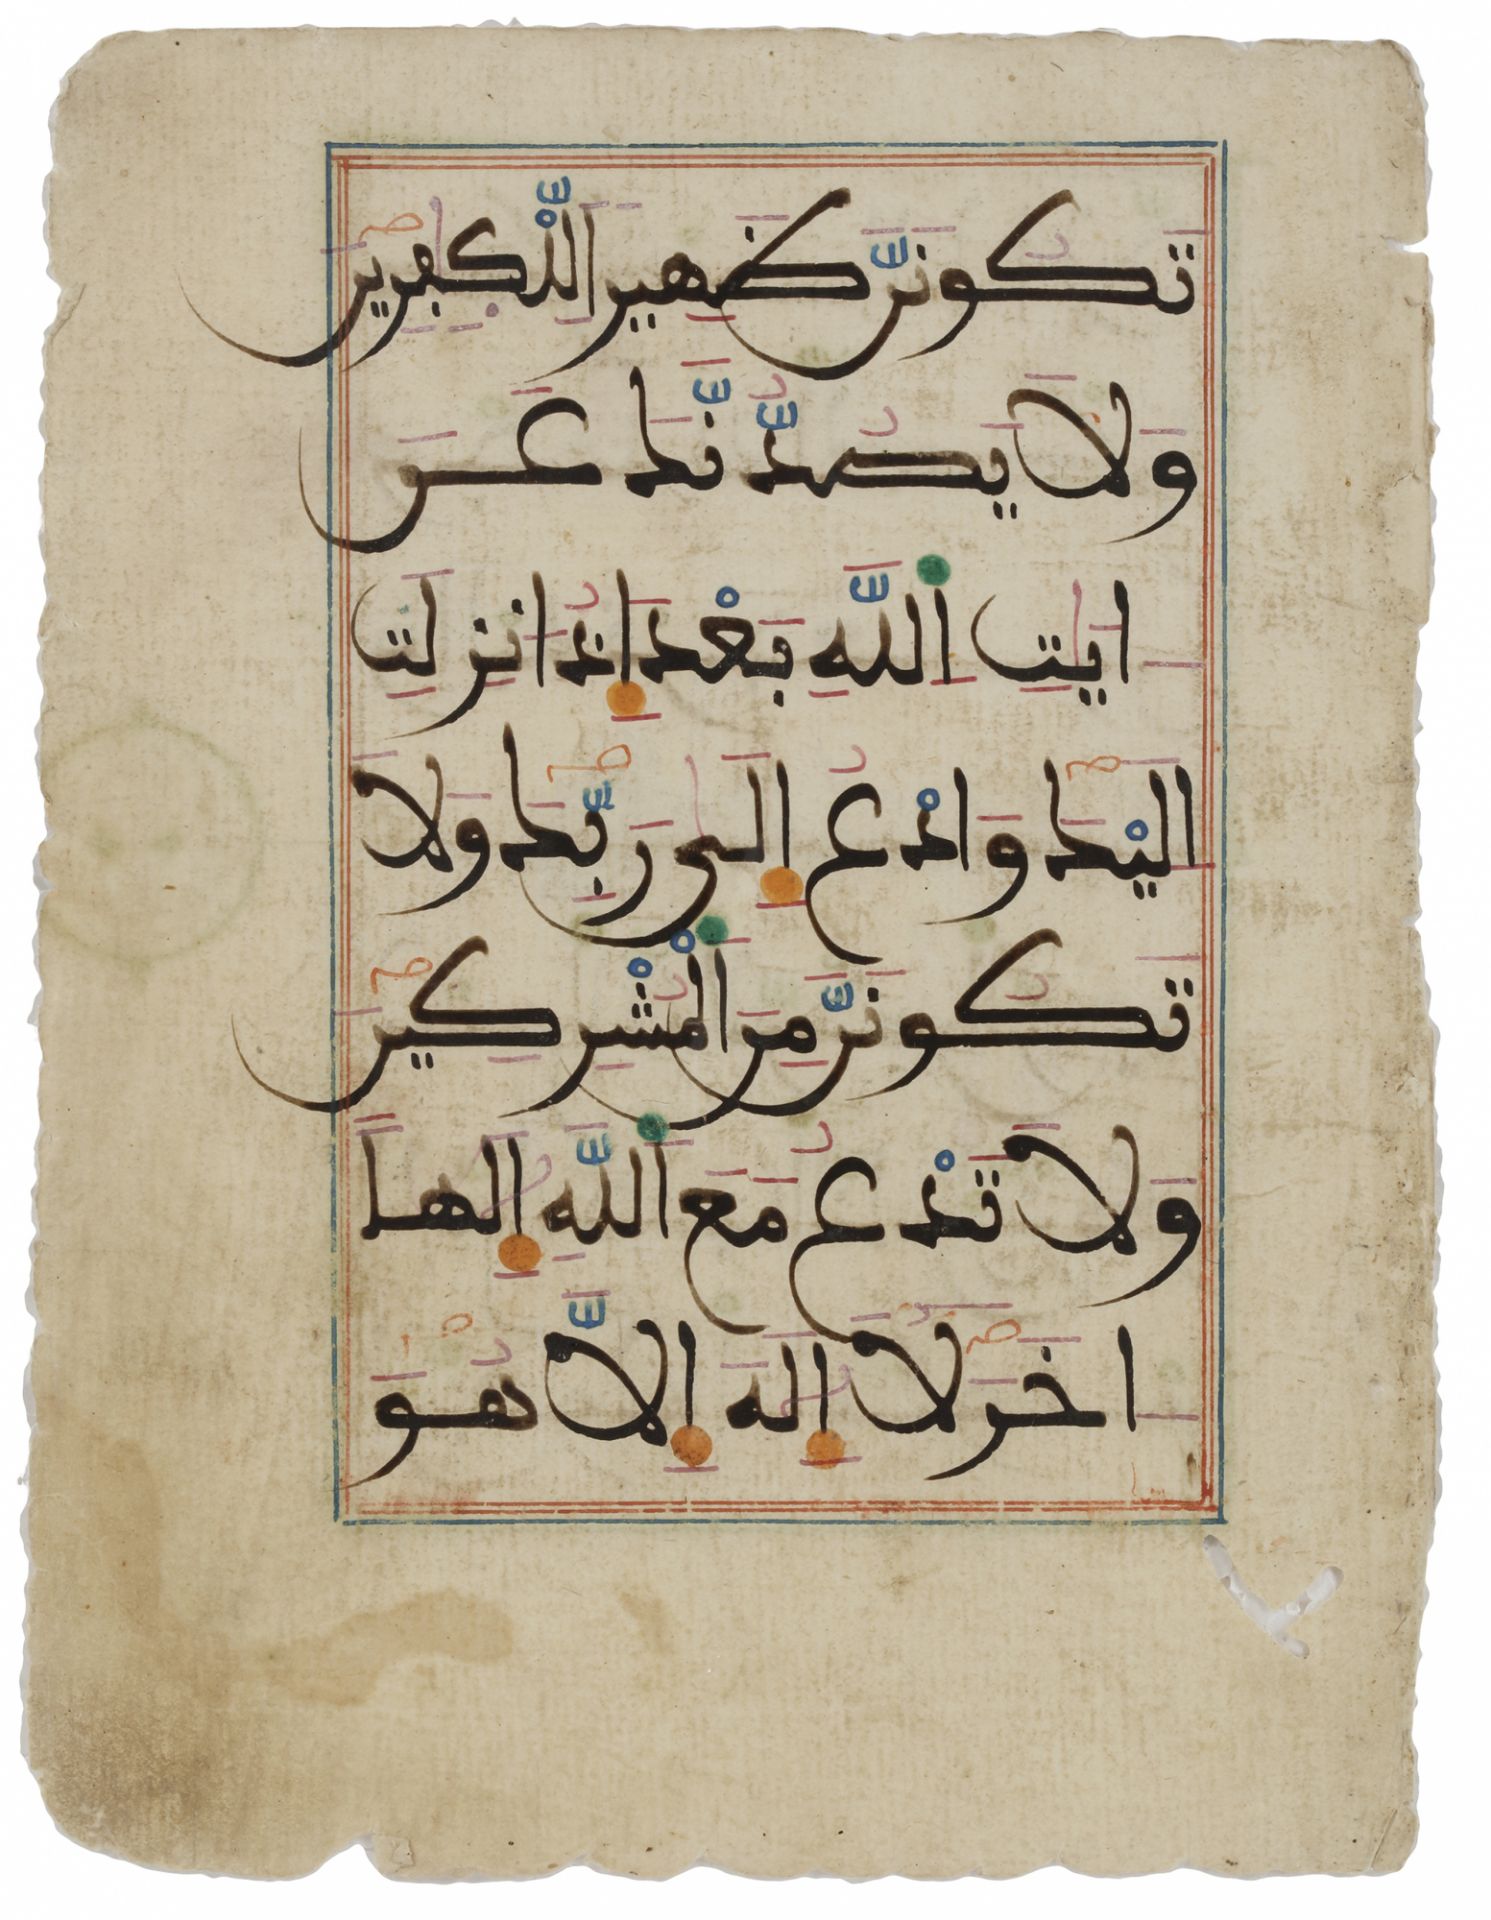 تَكُونَنَّ ظَهِيرًا لِّلْكٰفِرِينَ
وَلَا يَصُدُّنَّكَ عَنَ
ايٰتِ اللَّهِ بَعْدَ إِذُ انزِلَتِ
اِلَيْكَ وَادْعُ إِلَىٰ رَبِّكَ وَلَا
تَكُونَنَّ مِنَ الْمُشْرِكِينَ
وَلَا تَدْعُ مَعَ اللَّهِ إِلٰهاً
اخَرَ لَا إِلٰهَ إِلَّا هُوَ